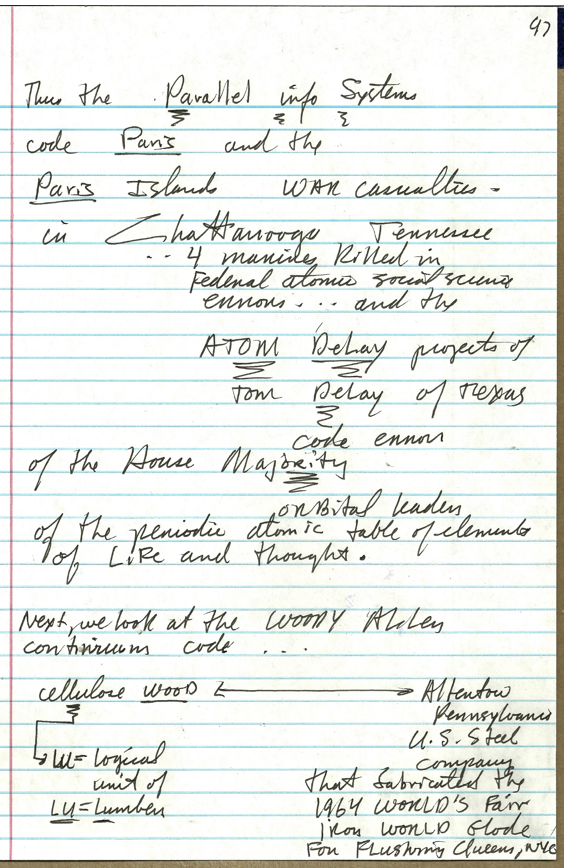 97
Thus the Parallel info Systems
code Paris and the
Paris Islands WAR casualties -
in Chattanooga Tennessee
.. 4 marines killed in
Federal atomic social science
errors . . . and the
ATOM DeLay projects of
Tom DeLay of Texas
code error
of the House Majority
orBital leader
of the periodic atomic table of elements
of Life and thought.
Next, we look at the WOODY Allen
continuum code ....
cellulose wood ↔ Allentow
Pennsylvania
U.S. Steel
company
LU = Logical
unit of
LU = Lumber
that fabricated the
1964 WORLD'S Fair
iron WORLD Globe
For Flushing Queens, NYC